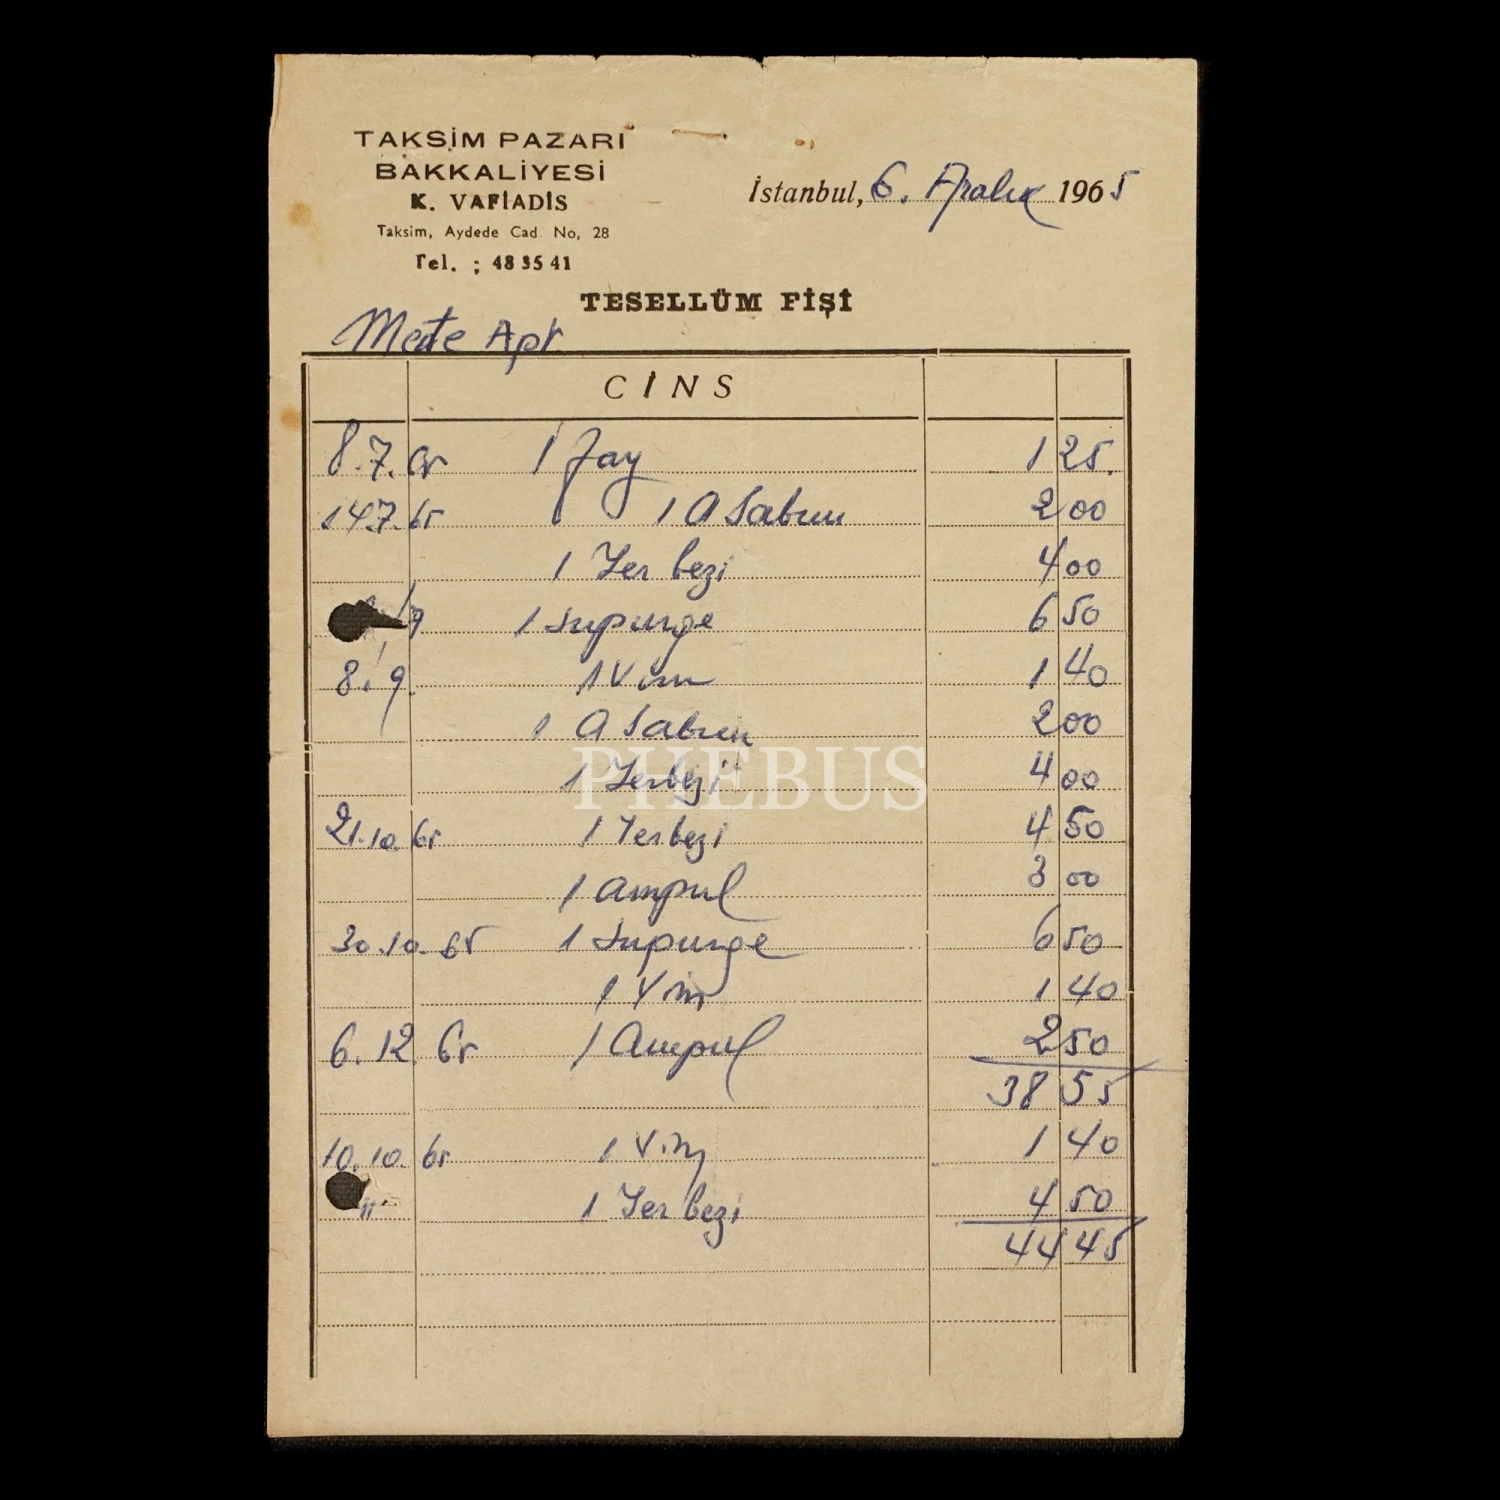 TAKSİM PAZARI
BAKKALİYESİ
K. VAFİADİS
Taksim, Aydede Cad. No, 28
Tel. ; 48 35 41
İstanbul, 6. Aralık 1965
TESELLÜM FİŞİ
Mete Apt
CİNS
8.7.65 1 Fay 1 25.
14.7.65 1 A Sabun 2 00
1 Yer bezi 4 00
1 Supurge 6 50
8.9. 1 Vim 1 40
1 A Sabun 2 00
1 Yerbezi 4 00
21.10.65 1 Yerbezi 4 50
1 Ampul 3 00
30.10.65 1 Supurge 6 50
1 Vim 1 40
6.12.65 1 Ampul 2 50
38 55
10.10.65 1 Vim 1 40
" 1 Yer bezi 4 50
44 45
PHEBUS